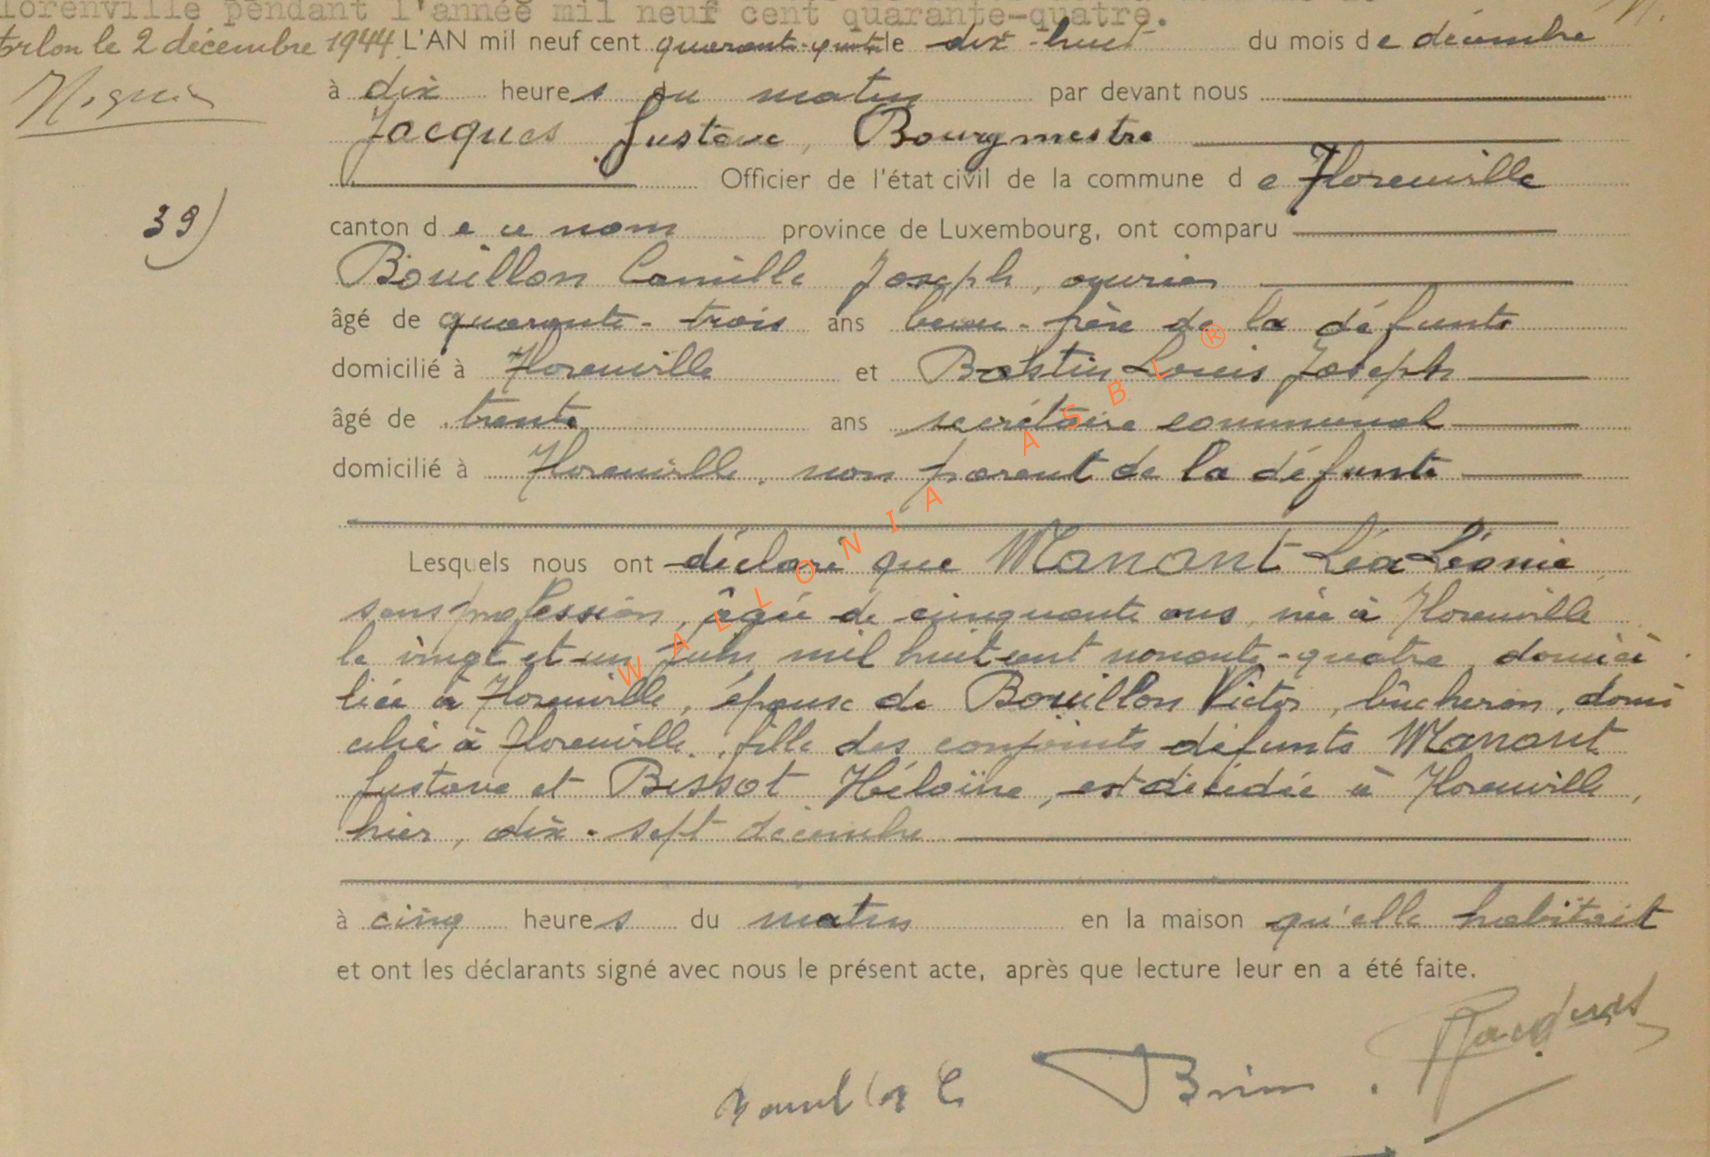 lorenville pendant l'année mil neuf cent quarante-quatre.
Arlon le 2 décembre 1944. L'AN mil neuf cent quarante-quatre le dix-huit du mois de décembre
à dix heures du matin par devant nous
Jacques Gustave, Bourgmestre
Officier de l'état civil de la commune de Florenville
39)
canton de ce nom province de Luxembourg, ont comparu
Bouillon Camille Joseph, ouvrier
âgé de quarante-trois ans beau-frère de la défunte
domicilié à Florenville et Bastin Louis Joseph
âgé de trente ans secrétaire communal
domicilié à Florenville, non parent de la défunte
Lesquels nous ont déclaré que Manant Léa Léonie,
sans profession, âgée de cinquante ans, née à Florenville
le vingt et un juin mil huit cent nonante-quatre, domici
liée à Florenville, épouse de Bouillon Victor, bûcheron, domi
cilié à Florenville, fille des conjoints défunts Manant
Gustave et Bissot Héloïse, est décédée à Florenville,
hier, dix-sept décembre
à cinq heures du matin en la maison qu'elle habitait
et ont les déclarants signé avec nous le présent acte, après que lecture leur en a été faite.
WALLONIA ASBL ®